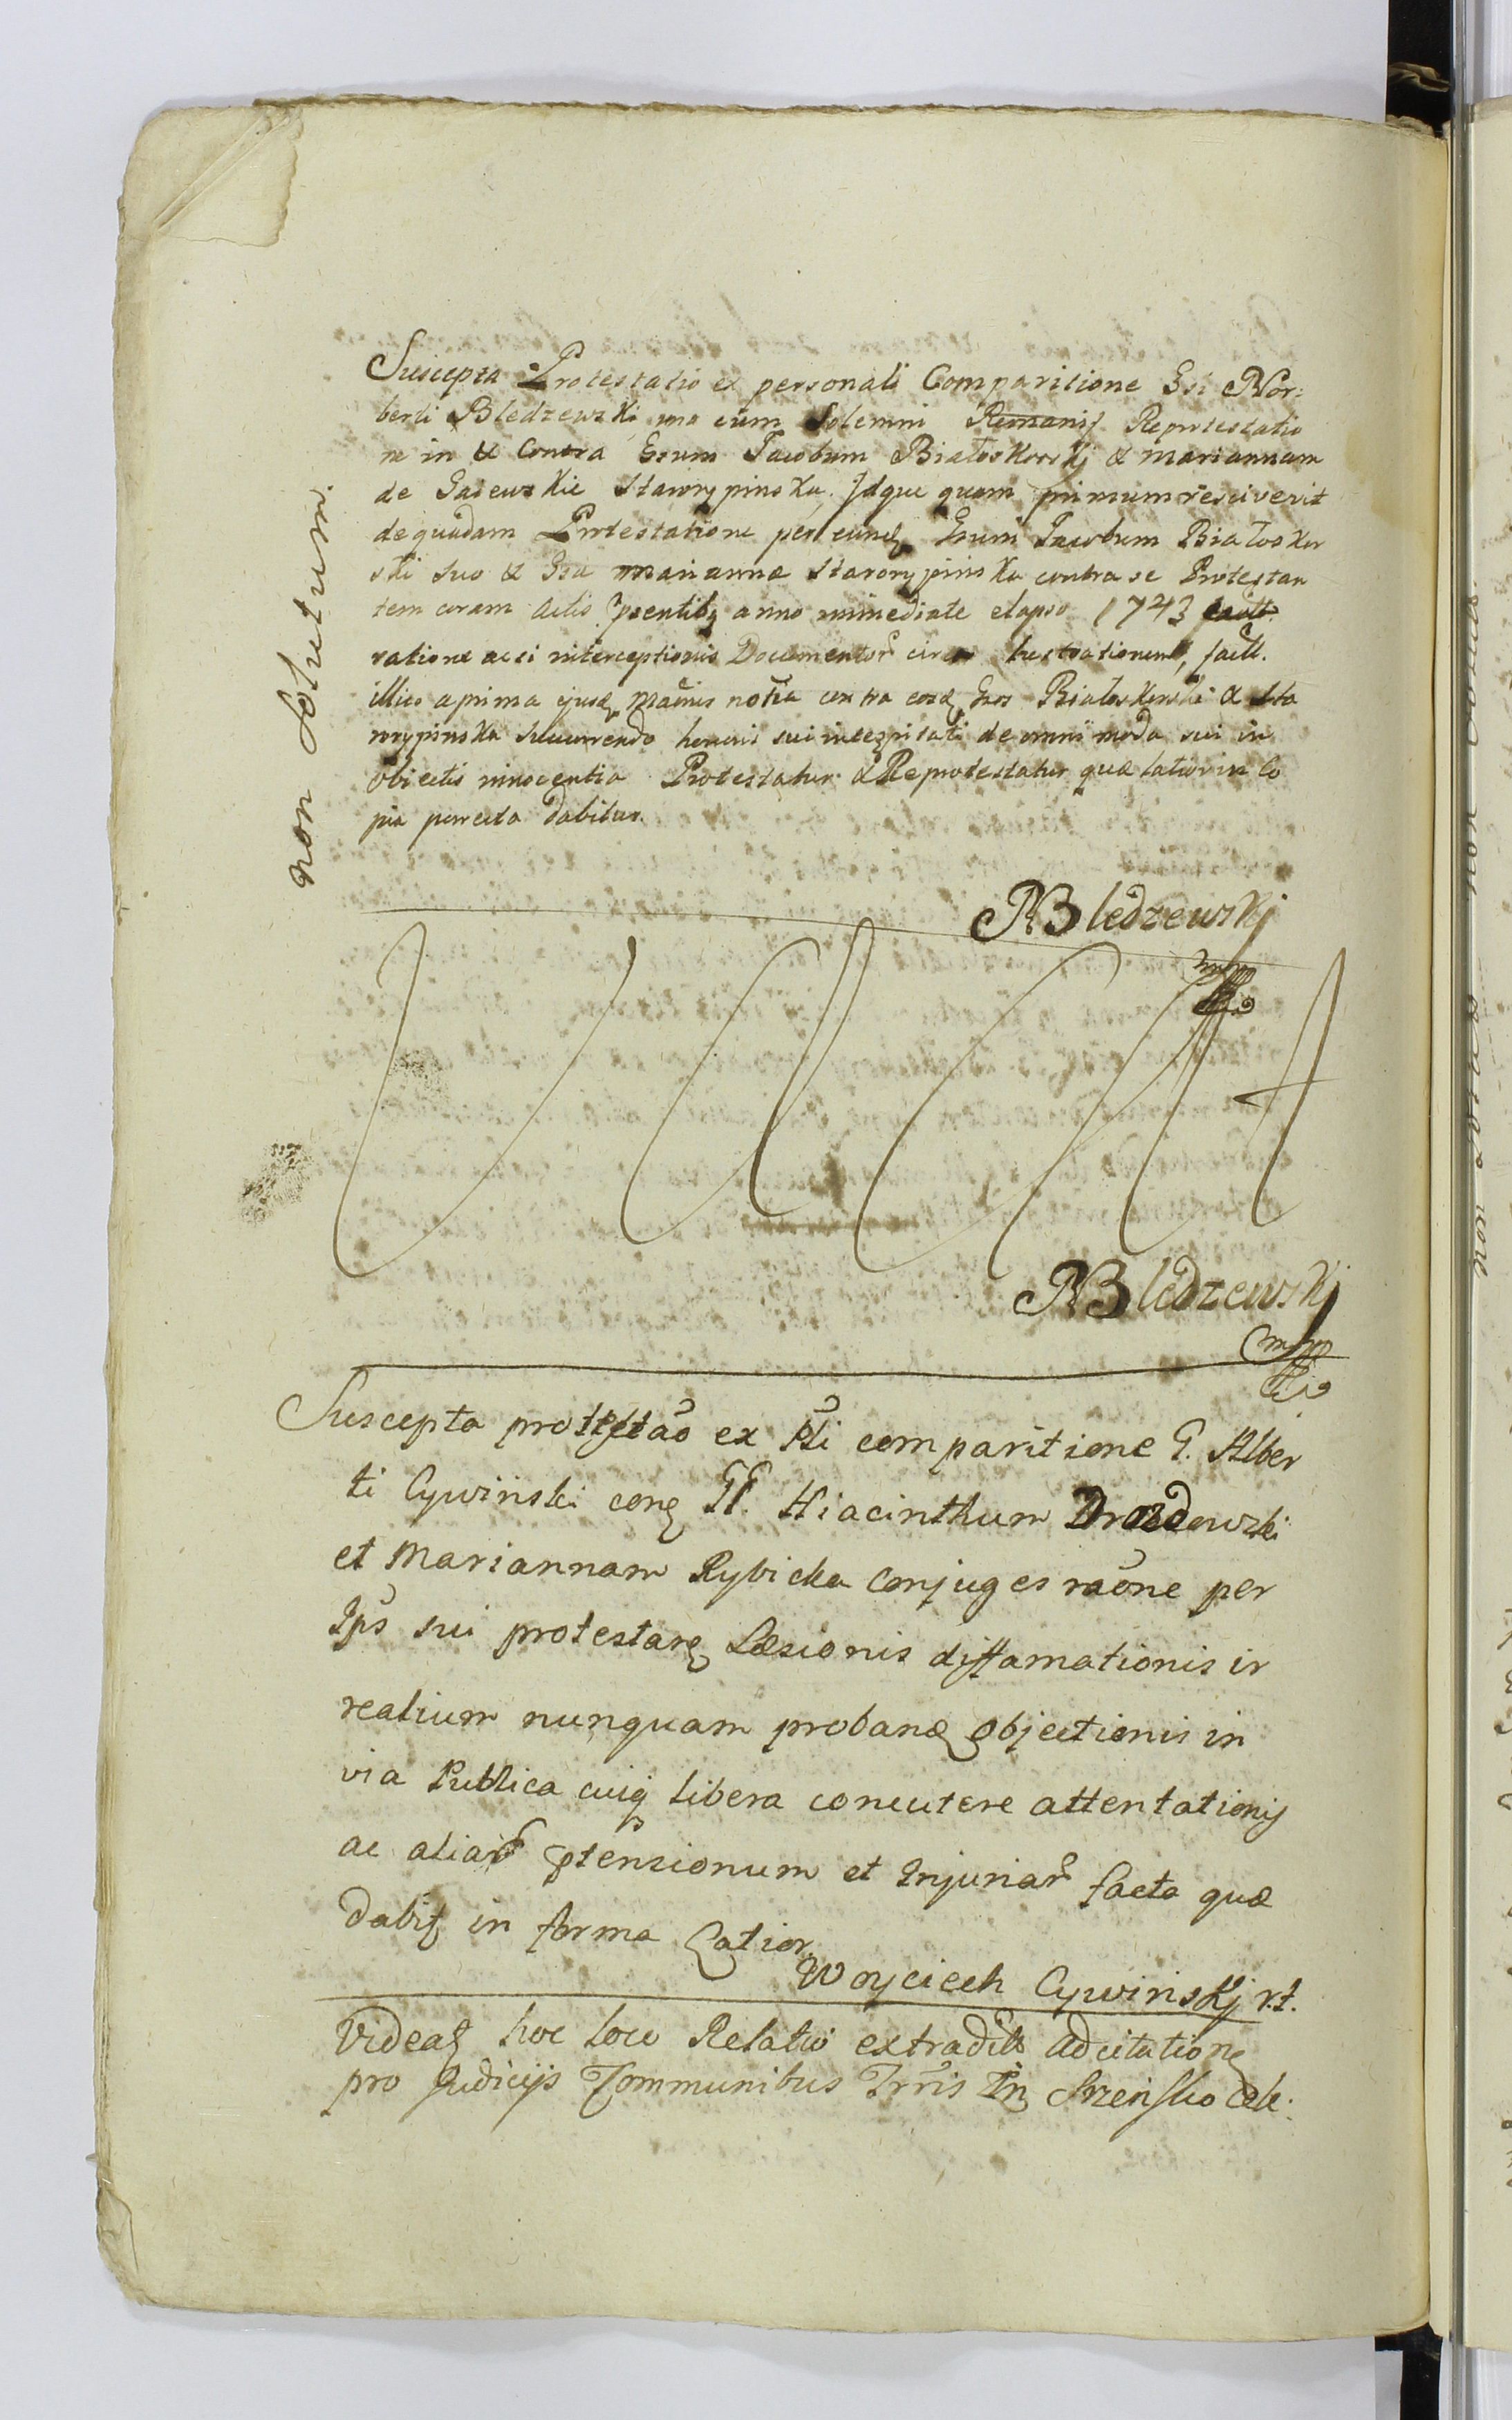 non Solutum.
Suscepta Protestatio ex personali Comparitione Gsi Nor:
berti Bledzewski una cum Solemni Remanif Reprotestatio
ne in & Contra Gsum Jacobum Białoskorskj & Mariannam
de Gaiewskie Starorypinska. Idque quam primum resciverit
de quadam Protestatione per eundę Gsum Jacobum Białoskor
ski suo & Gsa Marianna Starorypinska contra se Protestan
tem coram Actis Pesentibę anno immediate elapso 1743 factt.
ratione acsi interceptionis Documentor circa lustrationem, factt.
illico a prima ejusdę notia contra eosdę Gsos Białoskorski & Sta
rorypinska succurrendo honoris sui integritati de omni moda sui in
obiectis innocentia Protestatur & Reprotestatur quæ latior in Co
pia porrecta dabitur.
NBledzewskj
mpp
NBledzewskj
mpp
Suscepta prottestao ex Pli comparitione G. Alber
ti Cywinski conę GG. Hiacinthum Drozdowski
et Mariannam Rybicka Conjuges raone per
Ips sui protestarę Læsionis diffamationis ir
realium nunquam probandę Objectionis in
via Publica cuiq libera concutere attentationis
ac aliar ptensionum et Injuriar facta quæ
dabit in forma Latior.
Woyciech Cywinskj r.t.
Videat hoc loco Relatio extradit ad citationę
pro Judicijs Communibus Trris In Srzensko Cele.